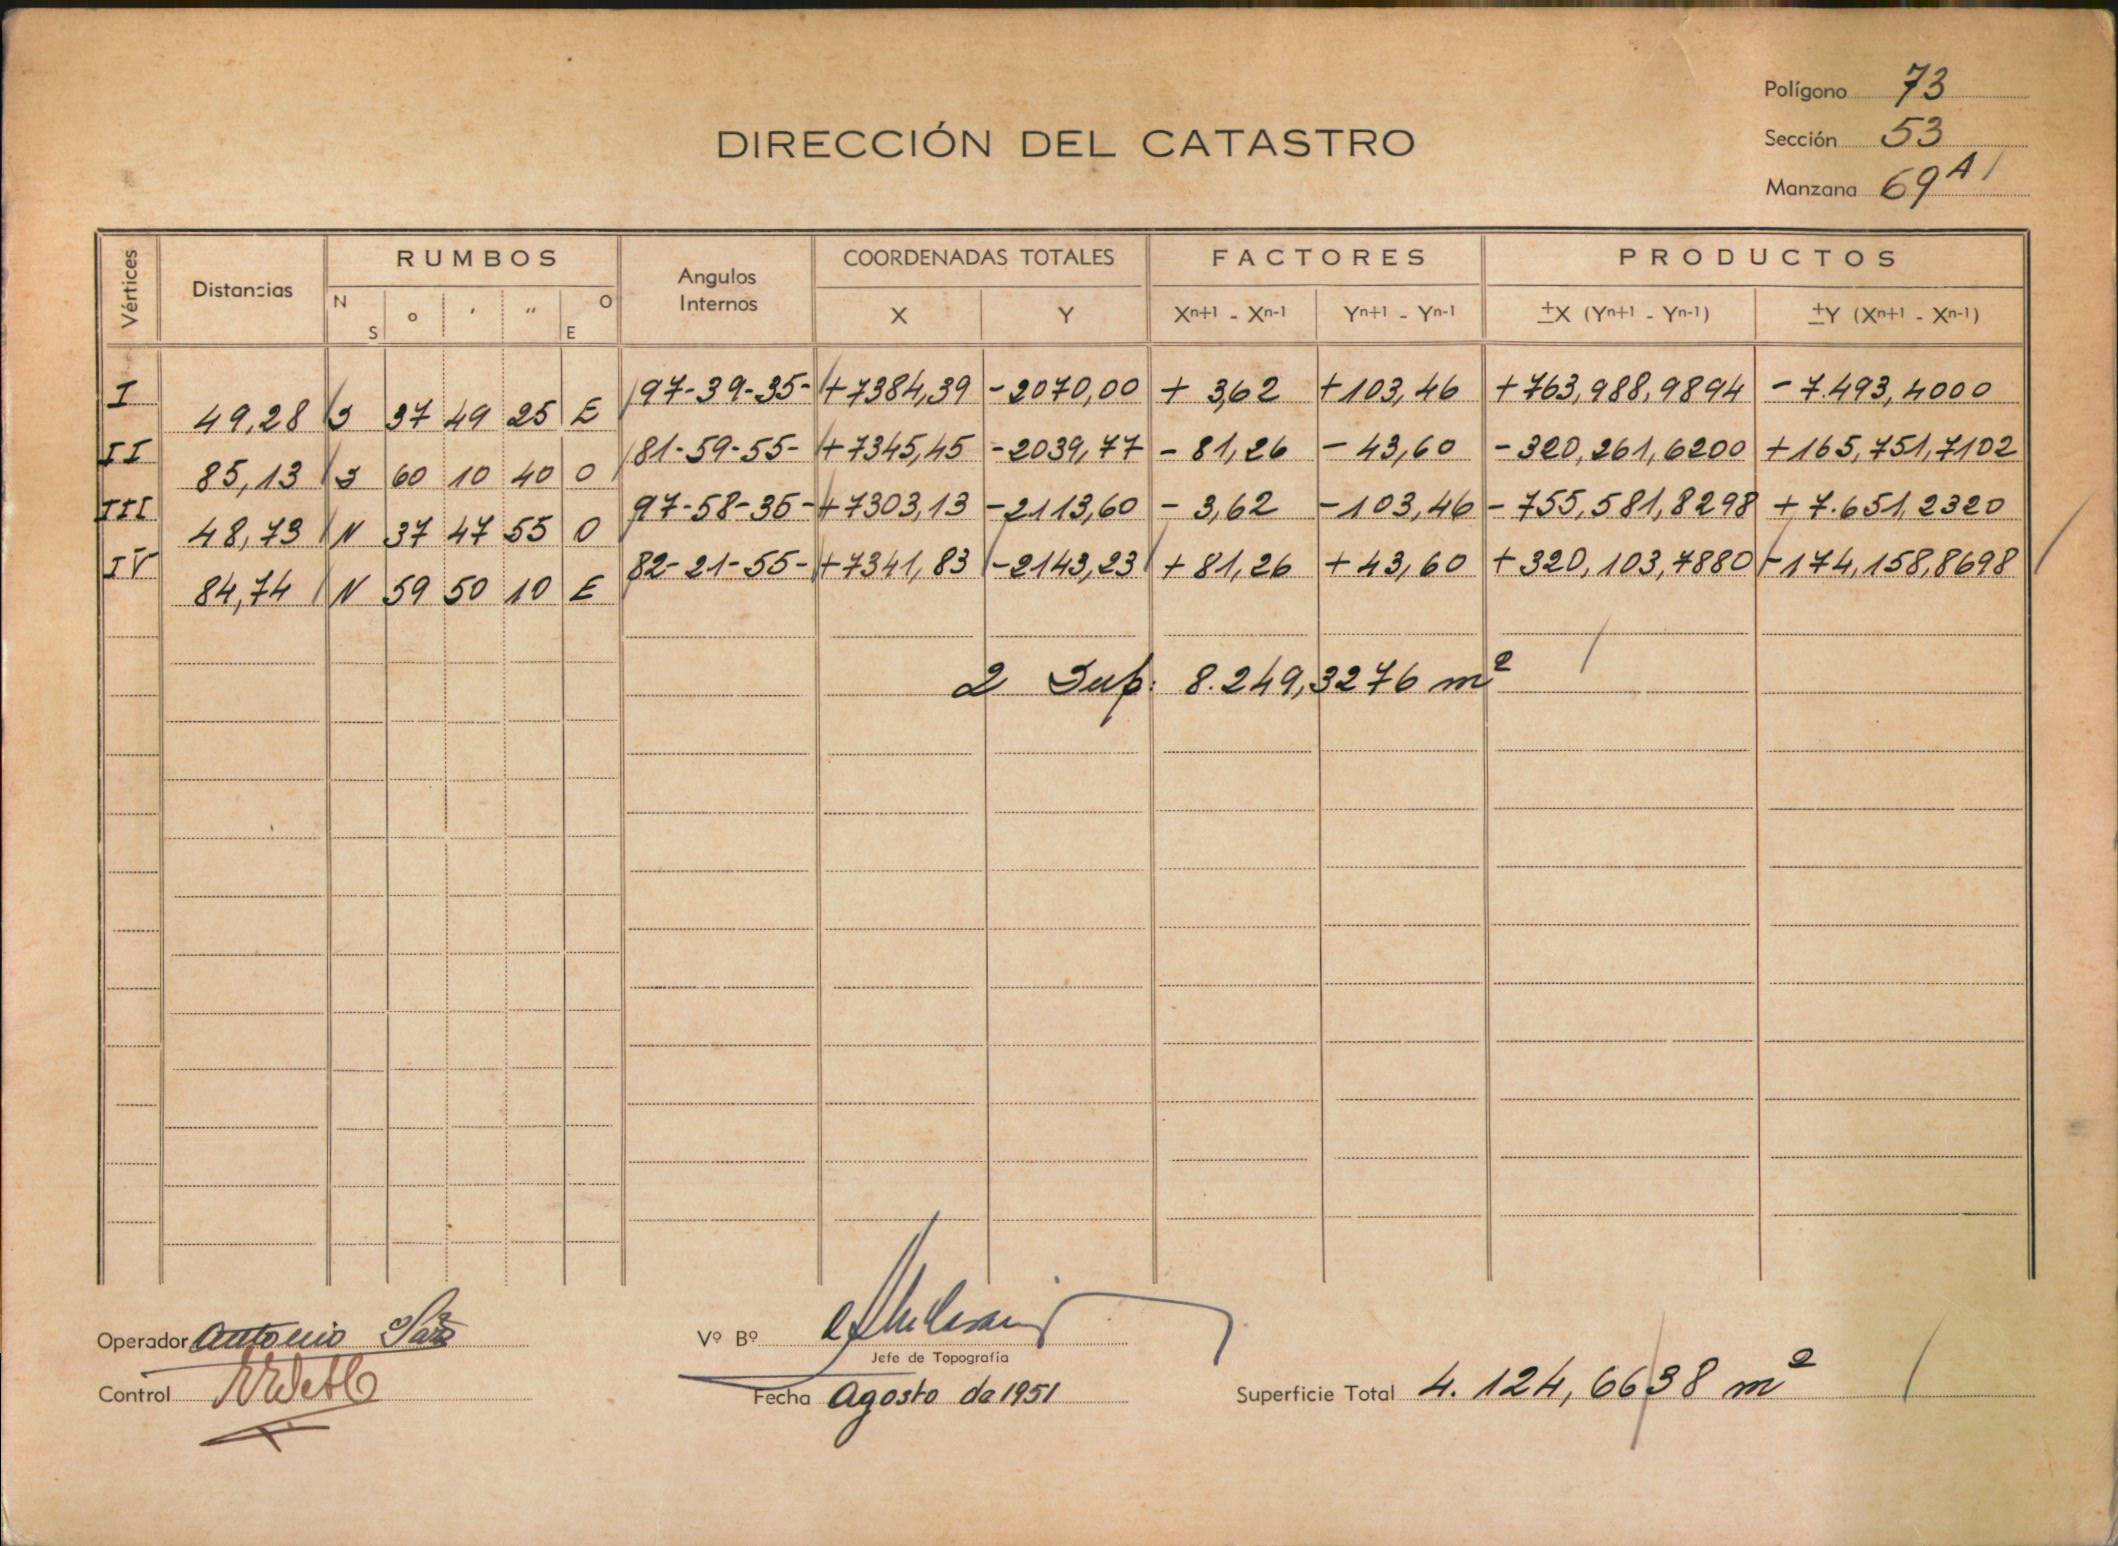 Polígono 73
DIRECCIÓN DEL CATASTRO
Sección 53
Manzana 69 A
Vértices Distancias RUMBOS Angulos Internos COORDENADAS TOTALES FACTORES PRODUCTOS
N S o ' " O E X Y Xn+1 - Xn-1 Yn+1 - Yn-1 ±X (Yn+1 - Yn-1) ±Y (Xn+1 - Xn-1)
I 97-39-35- +7384,39 -2070,00 + 3,62 +103,46 +763,988,9894 -7.493,4000
49,28 S 37 49 25 E
II 81-59-55- +7345,45 -2039,77 - 81,26 - 43,60 -320,261,6200 +165,751,7102
85,13 S 60 10 40 O
III 97-58-35- +7303,13 -2113,60 - 3,62 -103,46 -755,581,8298 +7.651,2320
48,73 N 37 47 55 O
IV 82-21-55- +7341,83 -2143,23 + 81,26 + 43,60 +320,103,7880 -174,158,8698
84,74 N 59 50 10 E
2 Sup: 8.249,3276 m²
Operador Antonio
Vº Bº
Jefe de Topografía
Control
Fecha Agosto de 1951
Superficie Total 4.124,6638 m²